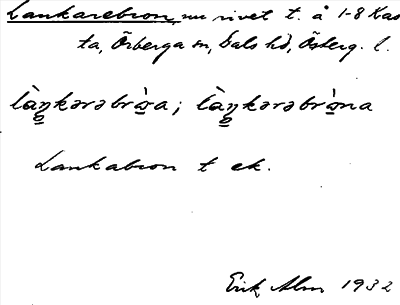 Lankarebron, nu rivet t. å 1-8 Kas
ta, Örberga sn, Dals hd, Österg. l.
làŋkərəbrò̱na; làŋkərəbrò̱na
Lankabron t ek.
Erik Alm 1932